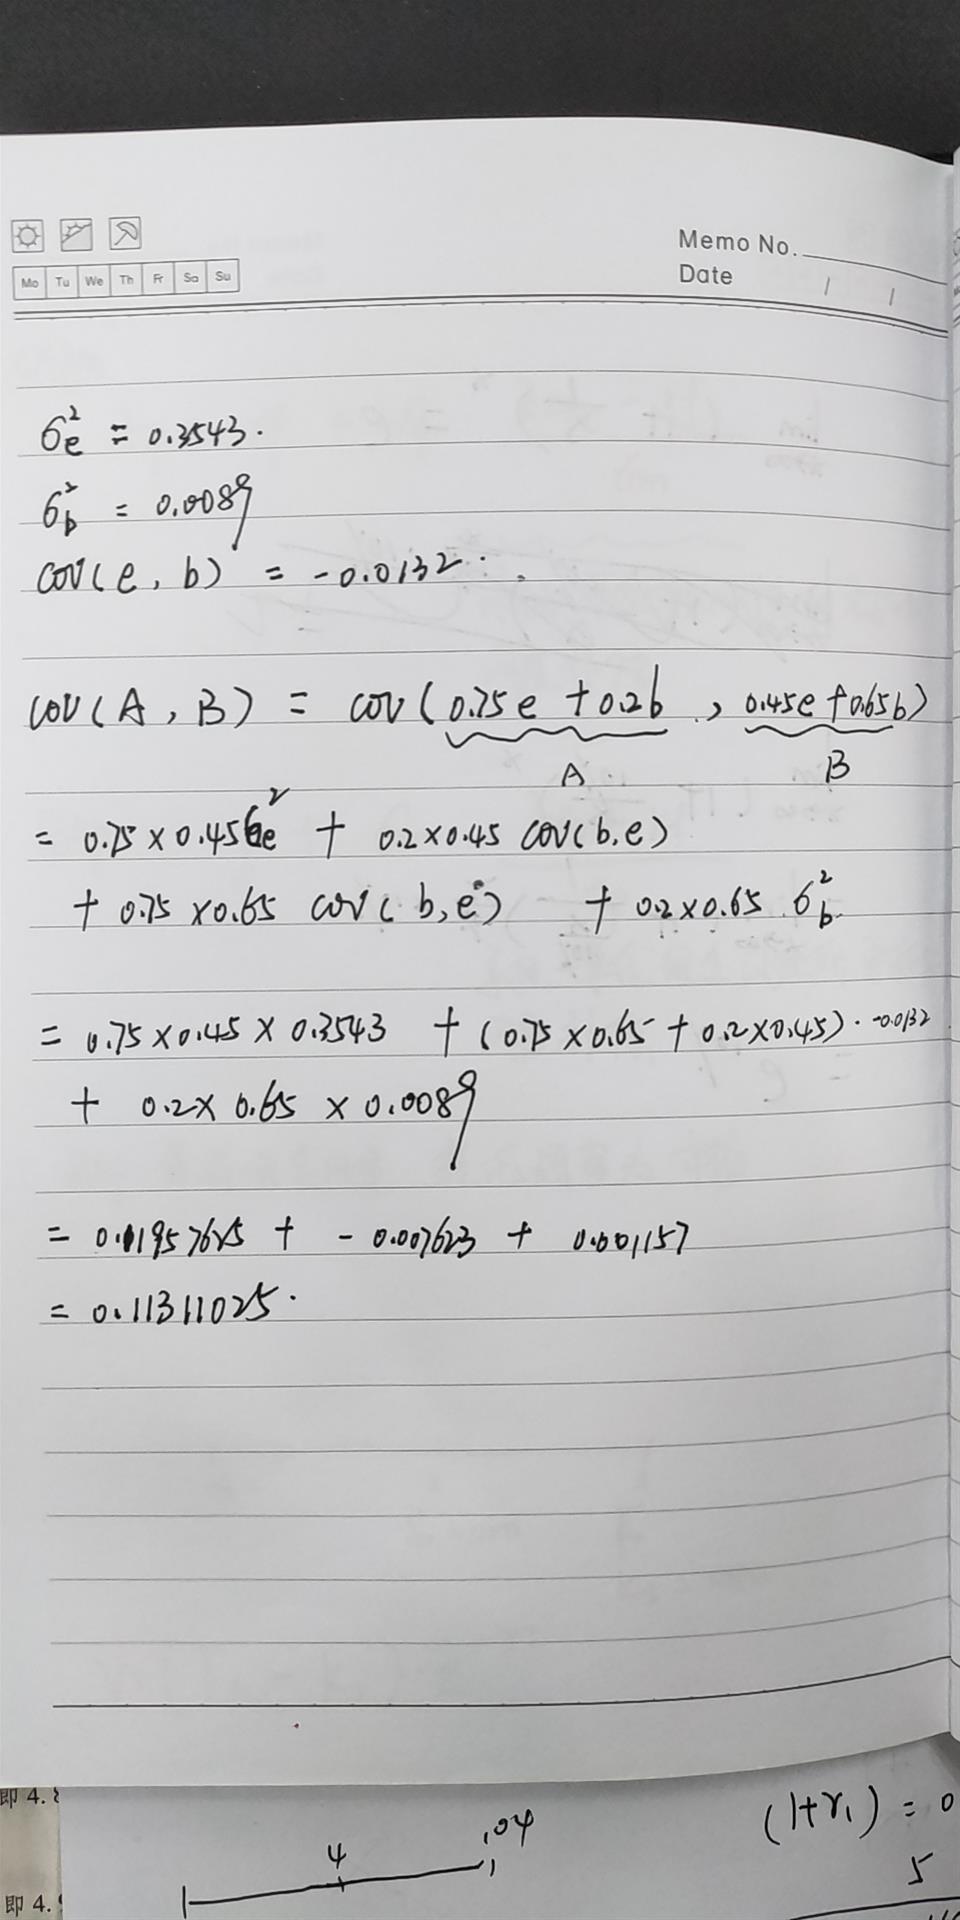 Memo No.
Mo Tu We Th Fr Sa Su
Date / /
σe² = 0.3543.
σb² = 0.0089
cov(e, b) = -0.0132.
cov(A, B) = cov(0.75e + 0.2b, 0.45e + 0.65b)
A B
= 0.75 × 0.45 σe² + 0.2 × 0.45 cov(b, e)
+ 0.75 × 0.65 cov(b, e) + 0.2 × 0.65 σb²
= 0.75 × 0.45 × 0.3543 + (0.75 × 0.65 + 0.2 × 0.45) · -0.0132
+ 0.2 × 0.65 × 0.0089
= 0.11957625 + -0.007623 + 0.001157
= 0.11311025.
即 4.
(1+r₁) = 0
4
5
即 4.